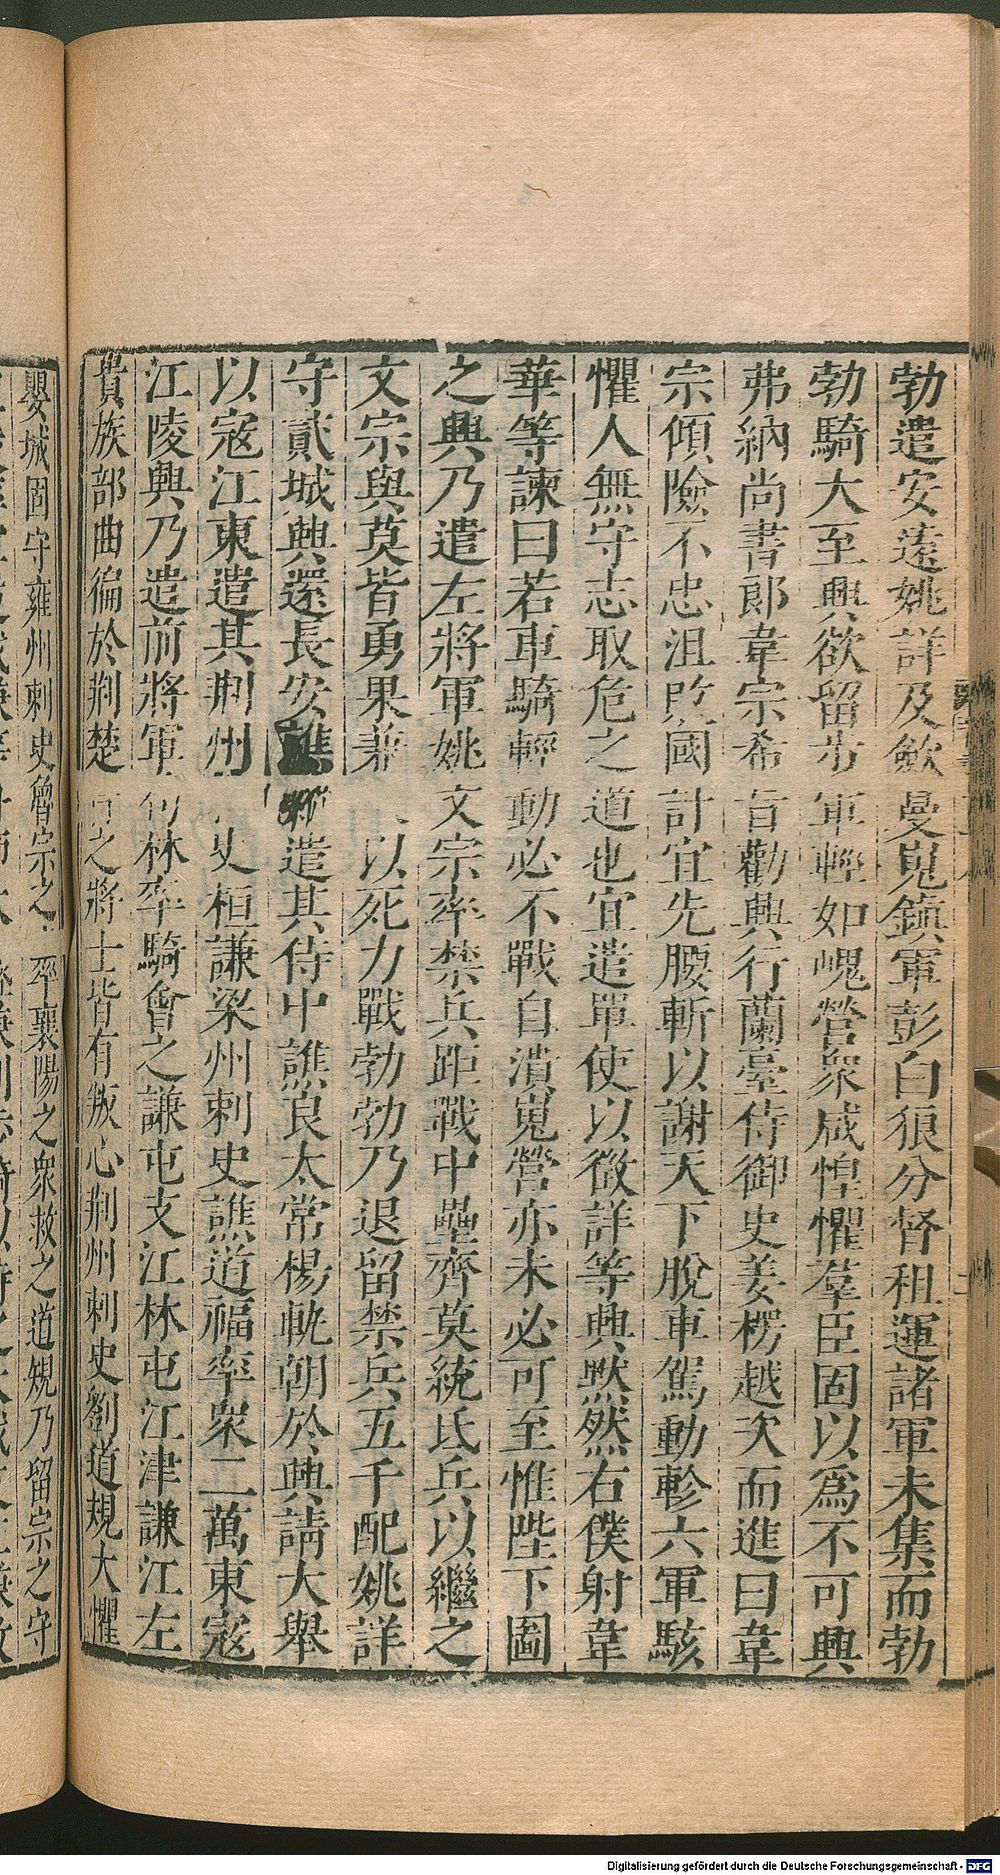 勃遣安遠姚詳及斂曼嵬鎮軍彭白狼分督租運諸軍未集而勃
勃騎大至興欲留步軍輕如嵬營衆咸惶懼羣臣固以爲不可興
弗納尚書郎韋宗希旨勸興行蘭臺侍御史姜楞越次而進曰韋
宗傾險不忠沮敗國計宜先腰斬以謝天下脫車駕動軫六軍駭
懼人無守志取危之道也宜遣單使以徵詳等興默然右僕射韋
華等諫曰若車騎輕動必不戰自潰嵬營亦未必可至惟陛下圖
之興乃遣左將軍姚文宗率禁兵距戰中壘齊莫統氐兵以繼之
文宗與莫皆勇果兼以死力戰勃勃乃退留禁兵五千配姚詳
守貳城興還長安譙 遣其侍中譙良太常楊軌朝於興請大舉
以寇江東遣其荆州 史桓謙梁州刺史譙道福率衆二萬東寇
江陵興乃遣前將軍 林率騎會之謙屯支江林屯江津謙江左
貴族部曲徧於荆楚 之將士皆有叛心荆州刺史劉道規大懼
嬰城固守雍州刺史魯宗之率襄陽之衆救之道規乃留宗之守
Digitalisierung gefördert durch die Deutsche Forschungsgemeinschaft - DFG